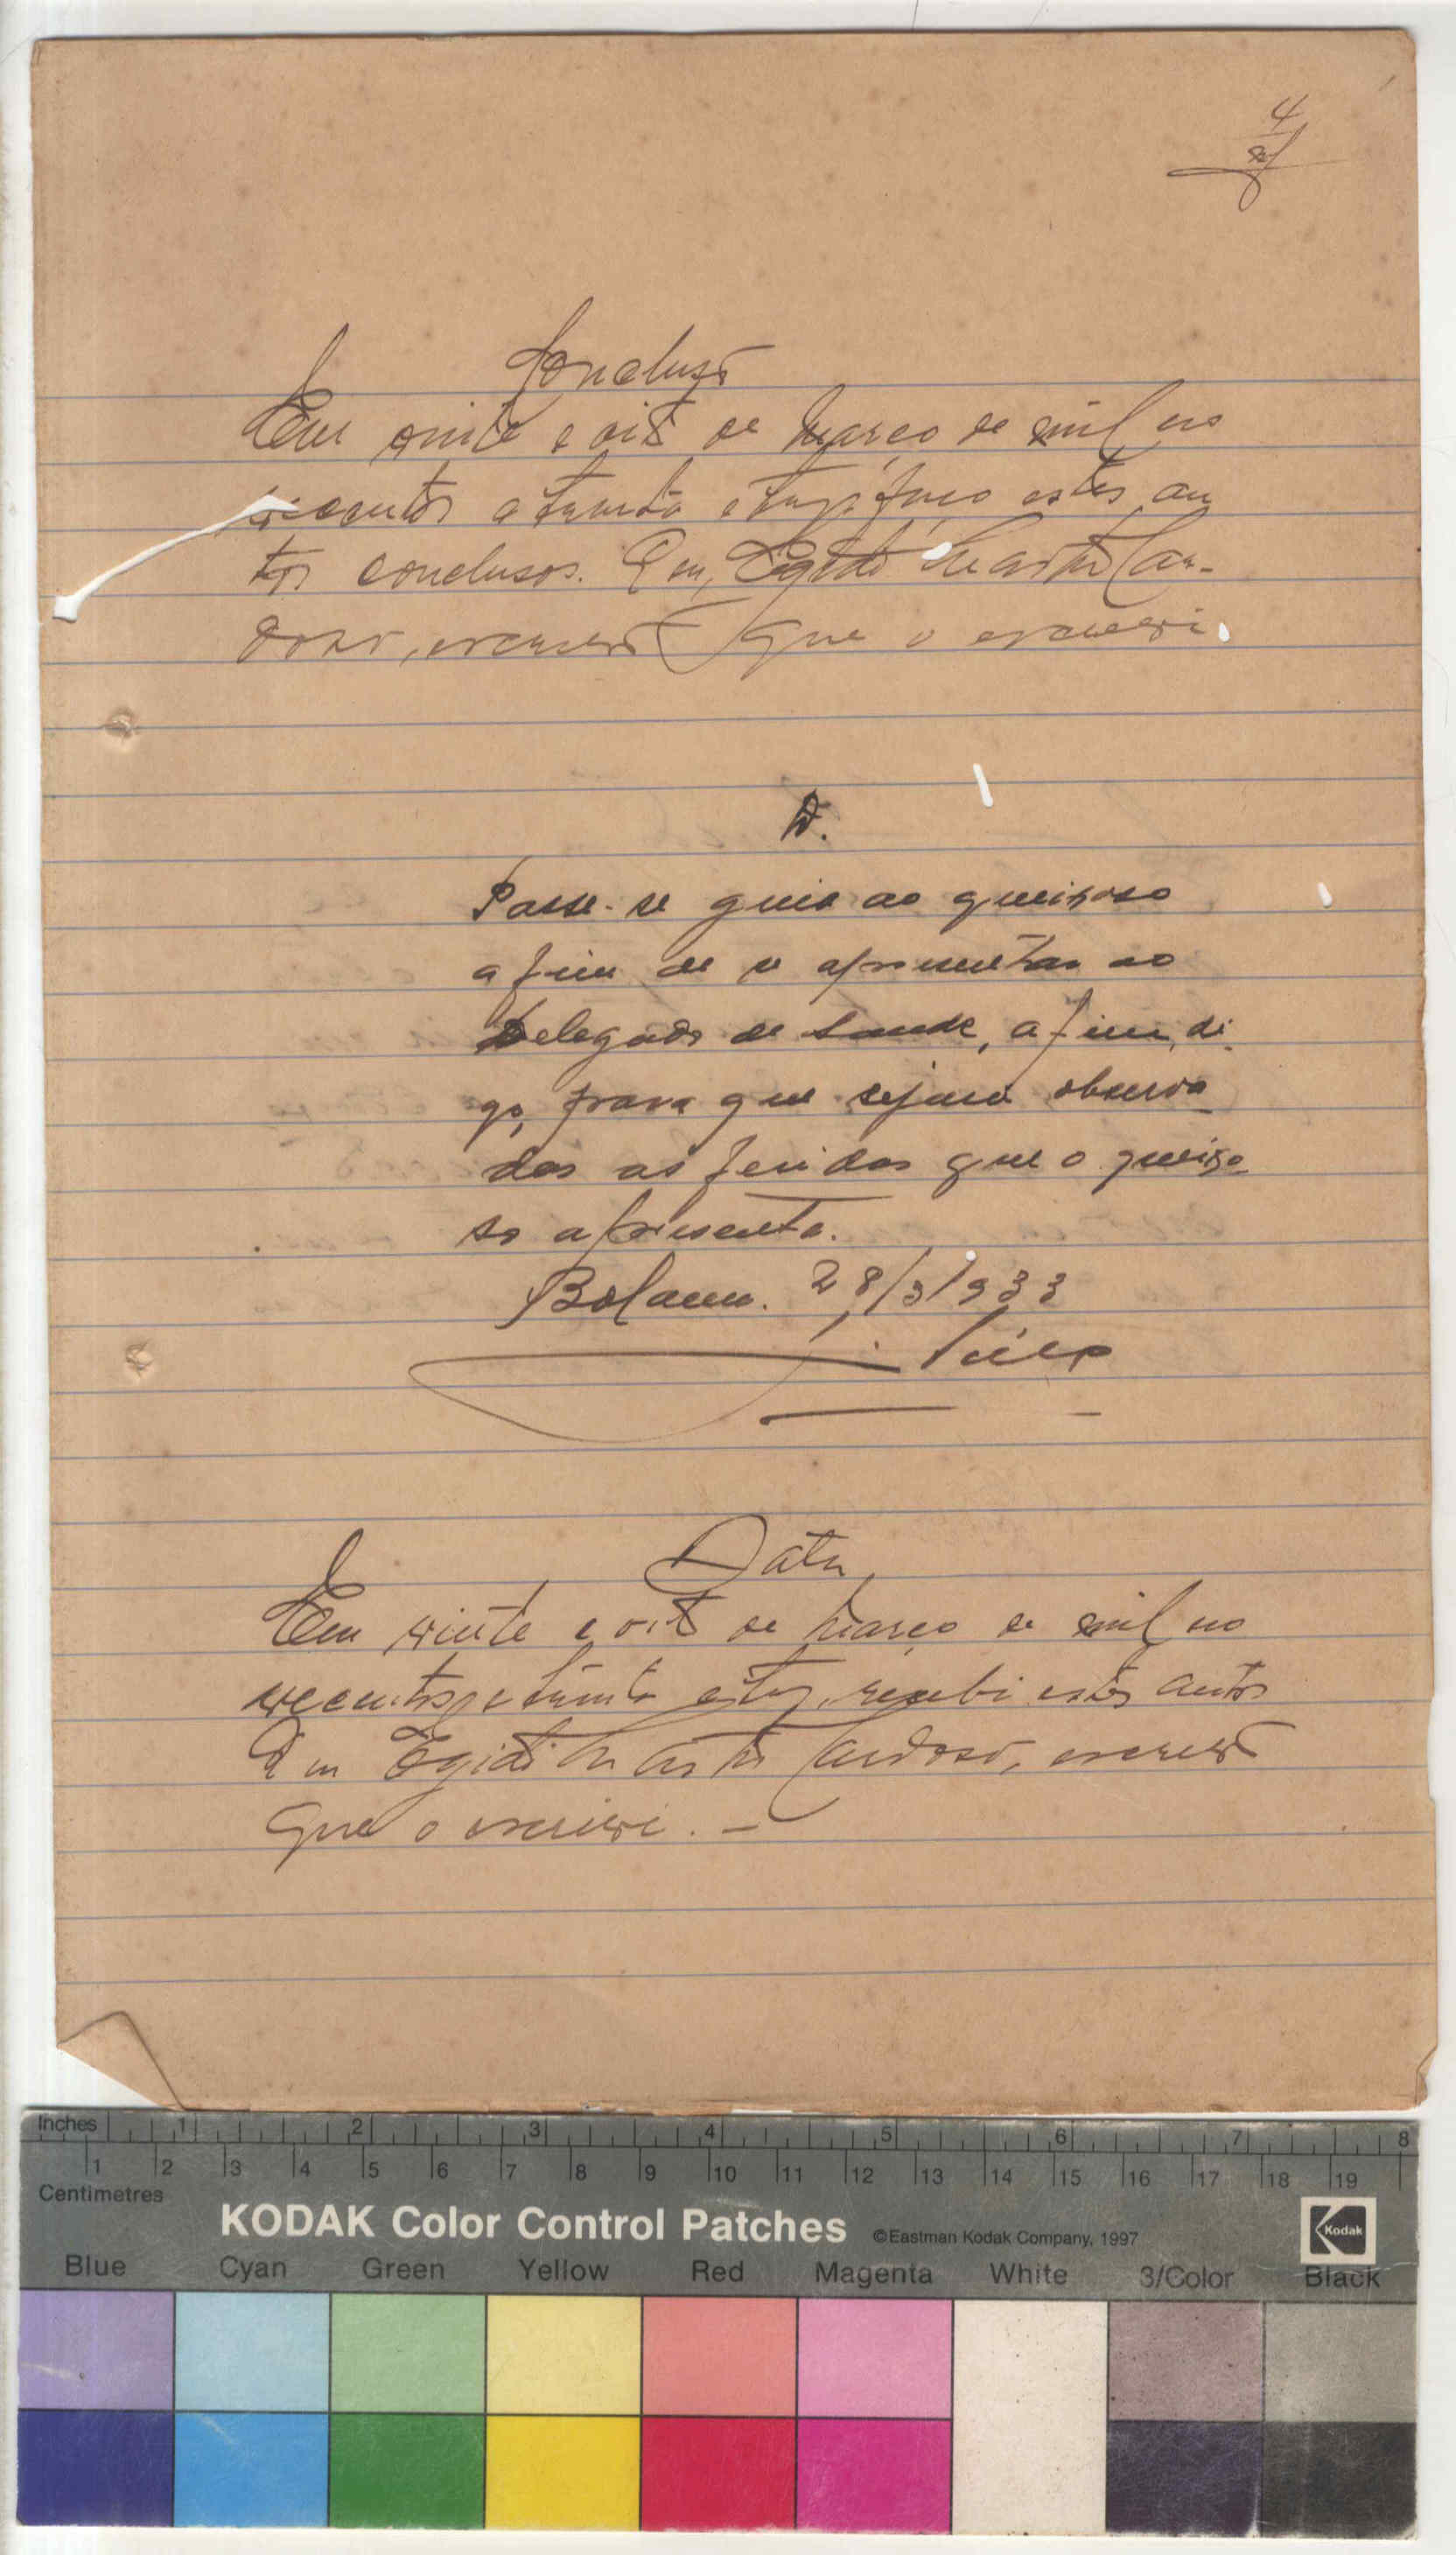 4
Conclusão
Em vinte e oito de Março de mil no
vecentos e trinta e tres, faço estes au
tos conclusos. Eu, Egidio Martins Car-
doso, escrivão que o escrevi.
D.
Passe-se guia ao queixoso
afim de se apresentar ao
Delegado de Saude, afim, di
go, para que sejam observa
das as feridas que o queixo
so apresenta.
Bolama. 28/3/933
Em vinte e oito de Março de mil no
Data
vecentos e trinta e tres, recebi estes autos
Eu Egidio Martins Cardoso, escrivão
que o escrevi. —
Inches 1 2 3 4 5 6 7 8
1 2 3 4 5 6 7 8 9 10 11 12 13 14 15 16 17 18 19
Centimetres
KODAK Color Control Patches ©Eastman Kodak Company, 1997 Kodak
Blue Cyan Green Yellow Red Magenta White 3/Color Black